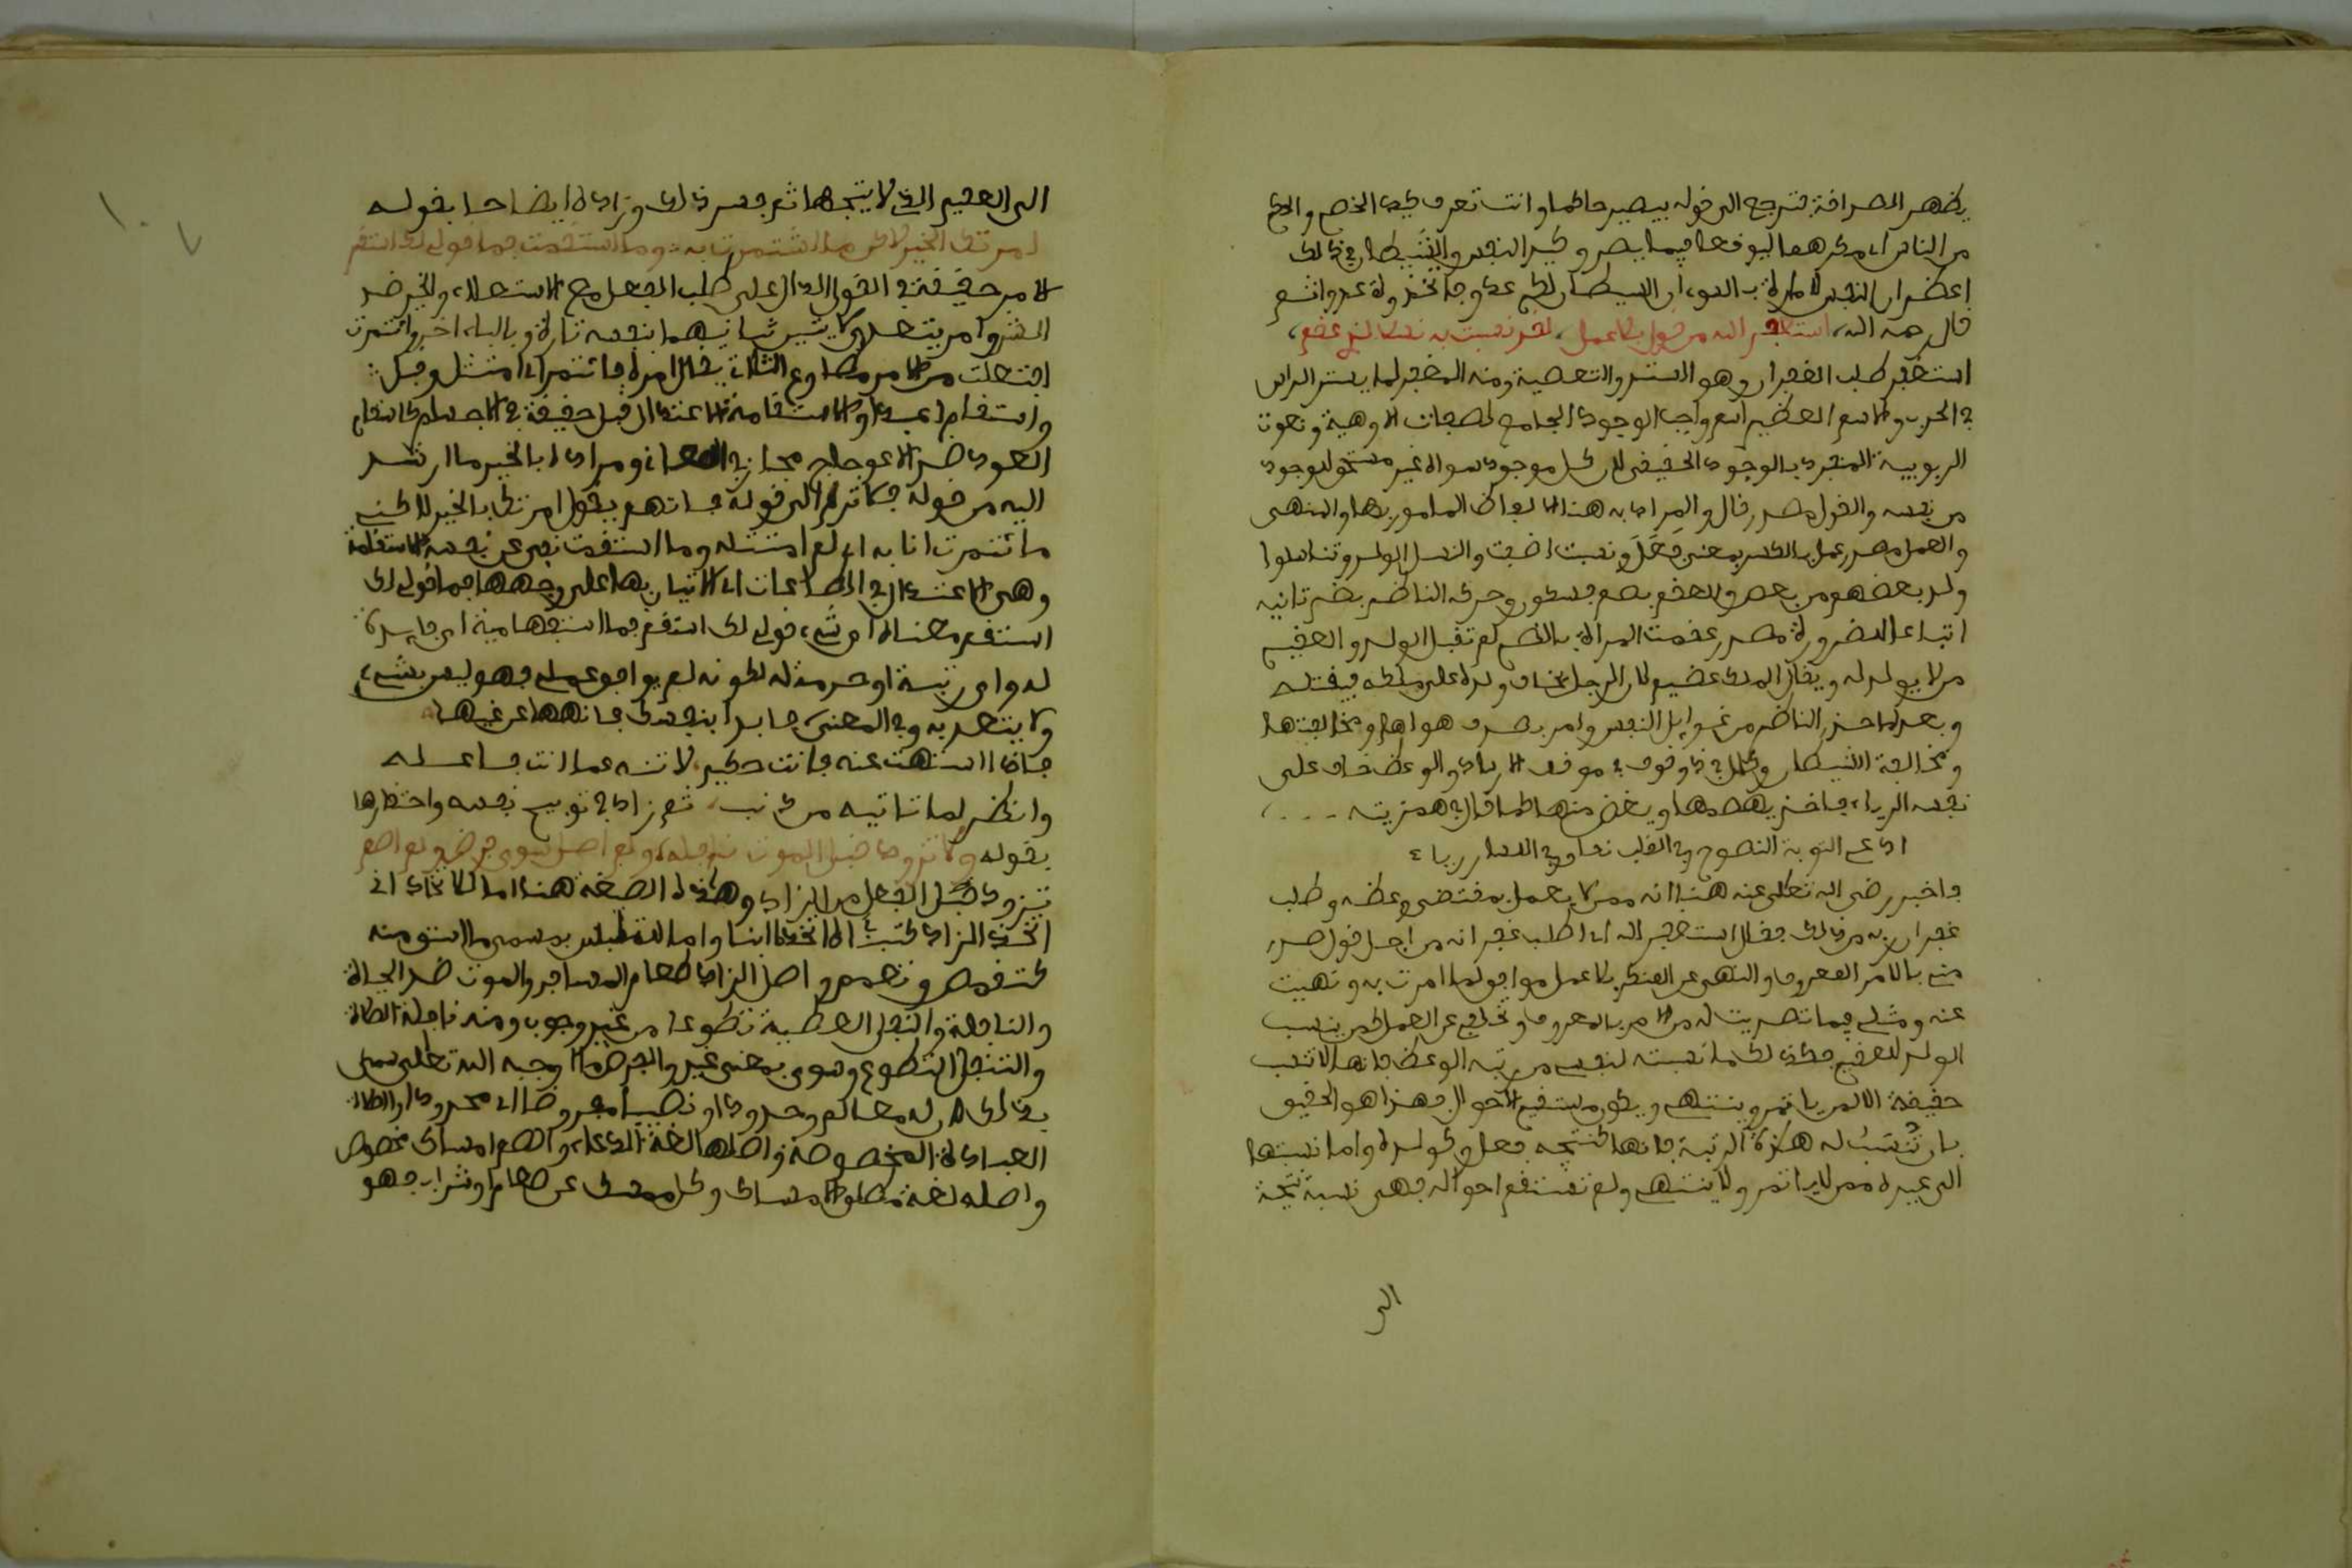 يظهر الصداقة فترجع الى قوله بيصير حاكما وانت تعرف كيد الخصم والحكم
من الناس اى مكرهما ليوقعا فيما يضر وكيد النفس والشيطان في ذلك
اعظم ان النفس لامارة بالسوء ان الشيطان لكم عدو فاتخذوه عدوا ثم
قال رحمه الله، استغفر الله من قول بلا عمل، لقد نسبت به نسلا لذي عقم،
استغفر طلب الغفران وهو الستر والتغطية ومنه المغفر لما يستر الراس
في الحرب والاسم العظيم اسم واجب الوجود الجامع لصفات الالوهية ونعوت
الربوبية المنفرد بالوجود الحقيقي لان كل موجود سواه غير مستحق لوجود
من نفسه والقول مصدر قال والمراد به هنا الالفاظ المامور بها والمنهى
والعمل مصدر عمل بالكسر بمعنى فعل ونسبت اضفت والنسل الولد وتناسلوا
ولد بعضهم من بعض والعقم بضم فسكون وحركه الناظم بضم ثانيه
اتباعا لضرورة مصدر عقمت المراة بالضم لم تقبل الولد والعقيم
من لا يولد له ويقال الملك عقيم لان الرجل يخاف ولده على ملكه فيقتله
وبعد لما حذر الناظم من غوايل النفس وامر بصرف هواها ومخالفتها
ومخالفة الشيطان وكان في ذا وقوف في موقف الارشاد والوعظ خاف على
نفسه الرياء فاخذ يهضمها ويغض منها كما قال في همزيته ...
ادعى التوبة النصوح وفي القلب نفاق وفي اللسان رياء
فاخبر رضي الله تعالى عنه هنا انه ممن لا يعمل بمقتضى وعظه وطلب
غفران ربه من ذلك فقال استغفر الله اى اطلب غفرانه من اجل قول صدر
مني بالامر المعروف والنهى عن المنكر بلا عمل موافق لما امرت به ونهيت
عنه ومثلي فيما تصديت له من الامر بالمعروف وتخلفي عن العمل كمن ينسب
الولد للعقيم فكذلك ما نسبته لنفسي من رتبة الوعظ فانها لا تنسب
حقيقة الا لمن ياتمر وينتهى ويكون مستقيم الاحوال فهذا هو الحقيق
بان تنسب له هذه الرتبة فانها كنتيجه فعل وكولده واما نسبتها
الى غيره ممن لا ياتمر ولا ينتهى ولم تستقم احواله فهى نسبة نتيجة
الى
الى العقيم التي لا ينتجها ثم فسر ذلك وزاده ايضاحا بقوله
امرتك الخير لاكن ما ائتمرت به : وما استقمت فما قولي لك استقم
الامر حقيقة في القول الدال على طلب الفعل مع الاستعلاء والخير ضد
الشر وامر يتعدى لاثنين ثانيهما بنفسه تارة وبالباء اخرى وائتمرت
افتعلت من الامر مطاوع الثلاثي يقال امره فائتمر اى امتثل وقبل
واستقام اعتدل والاستقامة الاعتدال قيل حقيقة في الاجسام كاستقام
العود ضد الاعوجاج مجاز في المعاني ومراده بالخير ما ارشد
اليه من قوله فلا ترم الى قوله فاتهم يقول امرتك بالخير لاكنني
ما ائتمرت انا به اى لم امتثله وما استقمت نفى عن نفسه الاستقامة
وهى الاعتدال في الطاعات اى الاتيان بها على وجهها فما قولي لك
استقم معناه اى شيء قولي لك استقم فما استفهامية اى فايدة
له واى رتبة او حرمة له لكونه لم يوافق عملي فهو ليس بشيء
ولا يعتد به وفي المعنى فابدا بنفسك فانهها عن غيها
فاذا انتهت عنه فانت حكيم لا تنه عما انت فاعله
وانظر لما تاتيه من ذنب، ثم زاد في توبيخ نفسه واحتقارها
بقوله ولا تزودت قبل الموت نافلة، ولم اصل سوى فرض ولم اصم
تزود تفعل من الزاد وهذه الصيغة هنا اما للاتخاذ اى
اتخذت الزاد كتبنيت اى اتخذته ابنا واما للتلبس بمسمى ما اشتق منه
كتقمص وتعمم واصل الزاد طعام المسافر والموت ضد الحياة
والنافلة والنفل العطية تطوعا من غير وجوب ومنه نافلة الصلاة
والتنفل التطوع وسوى بمعنى غير والفرض ما اوجبه الله تعالى سمى
بذلك لان له معالم وحدودا ونصيبا مفروضا اى محدودا والصلاة
العبادة المخصوصة واصلها لغة الدعاء والصوم امساك مخصوص
واصله لغة مطلق الامساك وكل ممسك عن طعام او شراب فهو
١٠٧